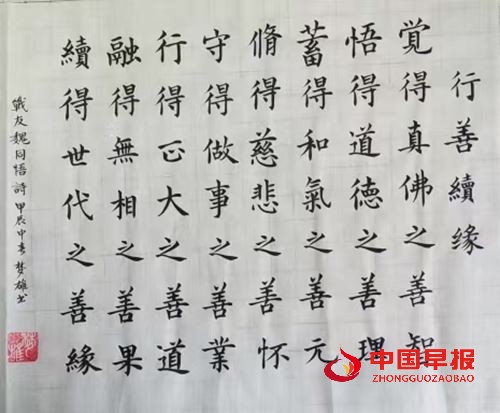 行善續缘
覚得真佛之善智
悟得道德之善理
蓄得和氣之善元
脩得慈悲之善怀
守得做事之善業
行得正大之善道
融得無相之善果
續得世代之善緣
戰友魏同悟詩 甲辰中春梦雄书
中国早报
ZHONGGUOZAOBAO